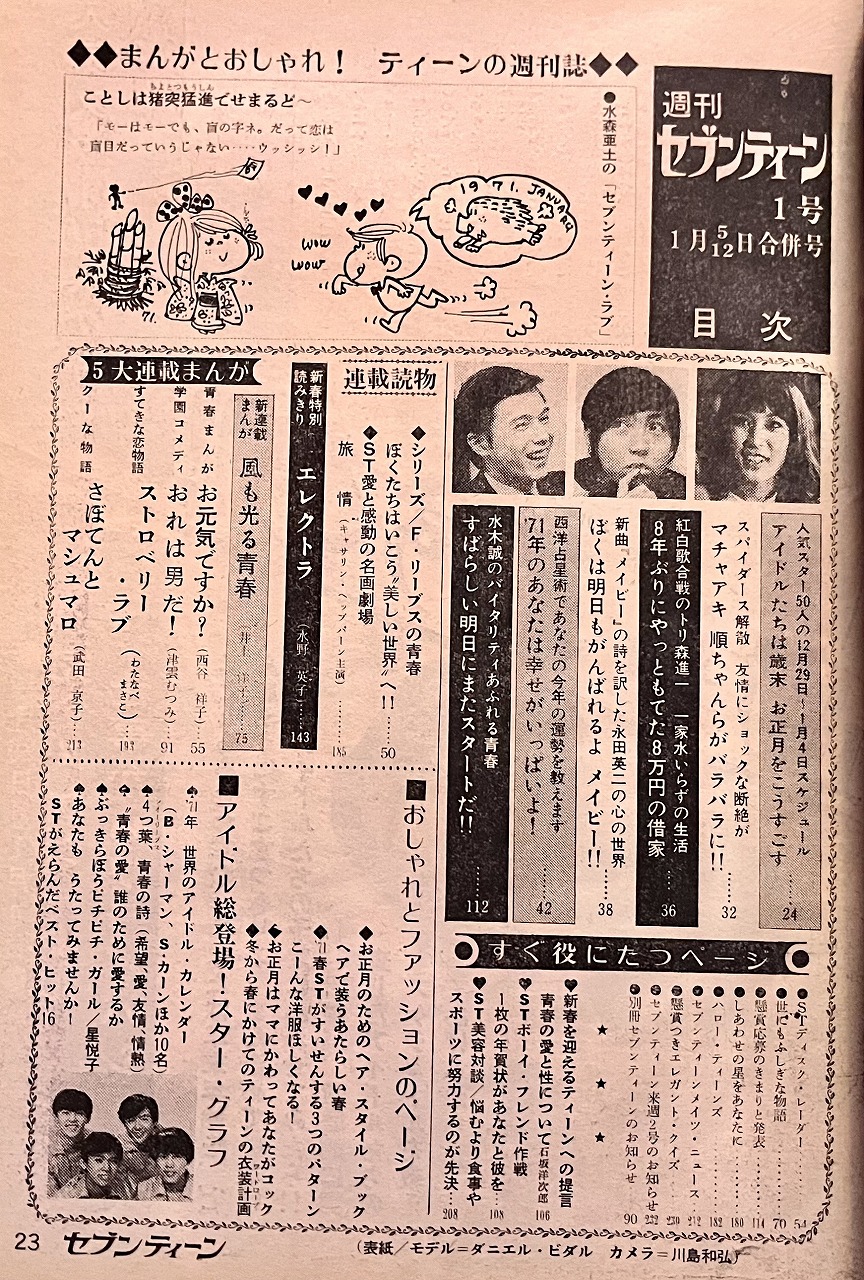 ◆◆まんがとおしゃれ！　ティーンの週刊誌◆◆
週刊
セブンティーン
1号
1月5/12日合併号
目次
●水森亜土の「セブンティーン・ラブ」
ことしは猪突猛進でせまるど～
ちょとつもうしん
「モーはモーでも、盲の字ネ。だって恋は
盲目だっていうじゃない‥‥ウッシッシ！」
WOW
WOW
1971. JANUARY
71.
人気スター50人の12月29日～1月4日スケジュール
アイドルたちは歳末 お正月をこうすごす……24
スパイダース解散 友情にショックな断絶が
マチャアキ 順ちゃんらがバラバラに!!……32
紅白歌合戦のトリ森進一 一家水いらずの生活
8年ぶりにやっともてた8万円の借家……36
新曲『メイビー』の詩を訳した永田英二の心の世界
ぼくは明日もがんばれるよ メイビー!!……38
西洋占星術であなたの今年の運勢を教えます
'71年のあなたは幸せがいっぱいよ！……42
水木誠のバイタリティあふれる青春
すばらしい明日にまたスタートだ!!……112
連載読物
◆シリーズ/F・リーブスの青春
ぼくたちはいこう〝美しい世界〟へ!!……50
◆ST愛と感動の名画劇場
旅情（キャサリン・ヘップバーン主演）……185
新春特別読みきり
エレクトラ（水野英子）……143
5大連載まんが
新連載まんが
風も光る青春　井上洋子……75
青春まんが
お元気ですか？（西谷祥子）……55
学園コメディ
おれは男だ！（津雲むつみ）……91
すてきな恋物語
ストロベリー・ラブ（わたなべまさこ）……193
クーな物語
さぼてんとマシュマロ（武田京子）……213
●すぐ役にたつページ●
●STディスク・レーダー　54
●世にもふしぎな物語　70
●懸賞応募のきまりと発表　114
●しあわせの星をあなたに　180
●ハロー・ティーンズ　182
●セブンティーンメイツ・ニュース　212
●懸賞つきエレガント・クイズ　230
●セブンティーン来週2号のお知らせ　232
●別冊セブンティーンのお知らせ　90
★　★　★
♥新春を迎えるティーンへの提言
青春の愛と性について石坂洋次郎　106
♥STボーイ・フレンド作戦
1枚の年賀状があなたと彼を…　108
♥ST美容対談/悩むより食事や
スポーツに努力するのが先決…208
■おしゃれとファッションのページ
◆お正月のためのヘア・スタイル・ブック
ヘアで装うあたらしい春
◆'71春STがすいせんする3つのパターン
こーんな洋服ほしくなる！
◆お正月はママにかわってあなたがコック
◆冬から春にかけてのティーンの衣装計画
ワードローブ
■アイドル総登場！スター・グラフ
♠'71年 世界のアイドル・カレンダー
（B・シャーマン、S・カーンほか10名）
♠4つ葉、青春の詩（希望、愛、友情、情熱）
♠〝青春の愛〟誰のために愛するか
♠ぶっきらぼうピチピチ・ガール/星悦子
♠あなたも うたってみませんか！
STがえらんだベスト・ヒット16
23
セブンティーン
（表紙/モデル＝ダニエル・ビダル　カメラ＝川島和弘）